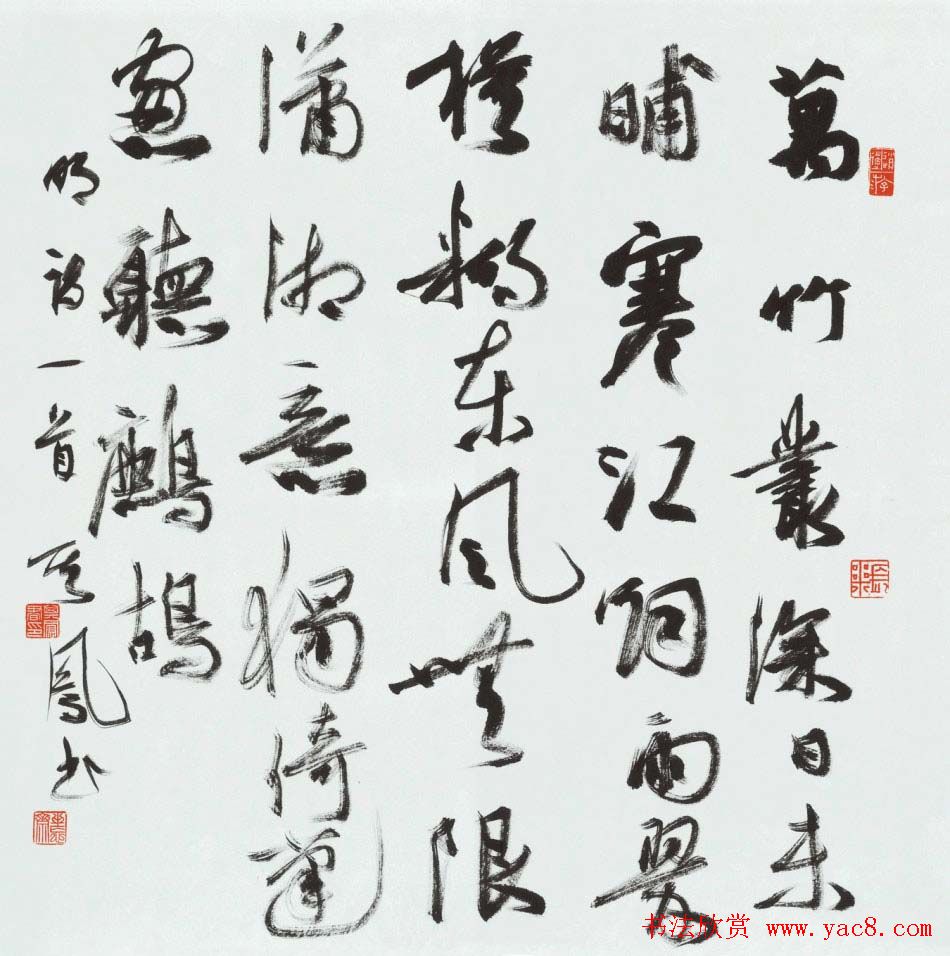 萬竹叢深日未
晡寒江烟雨翠
模糊東風無限
瀟湘意獨倚蓬
窻聽鷓鴣
明詩一首 鳳書
书法欣赏 www.yac8.com